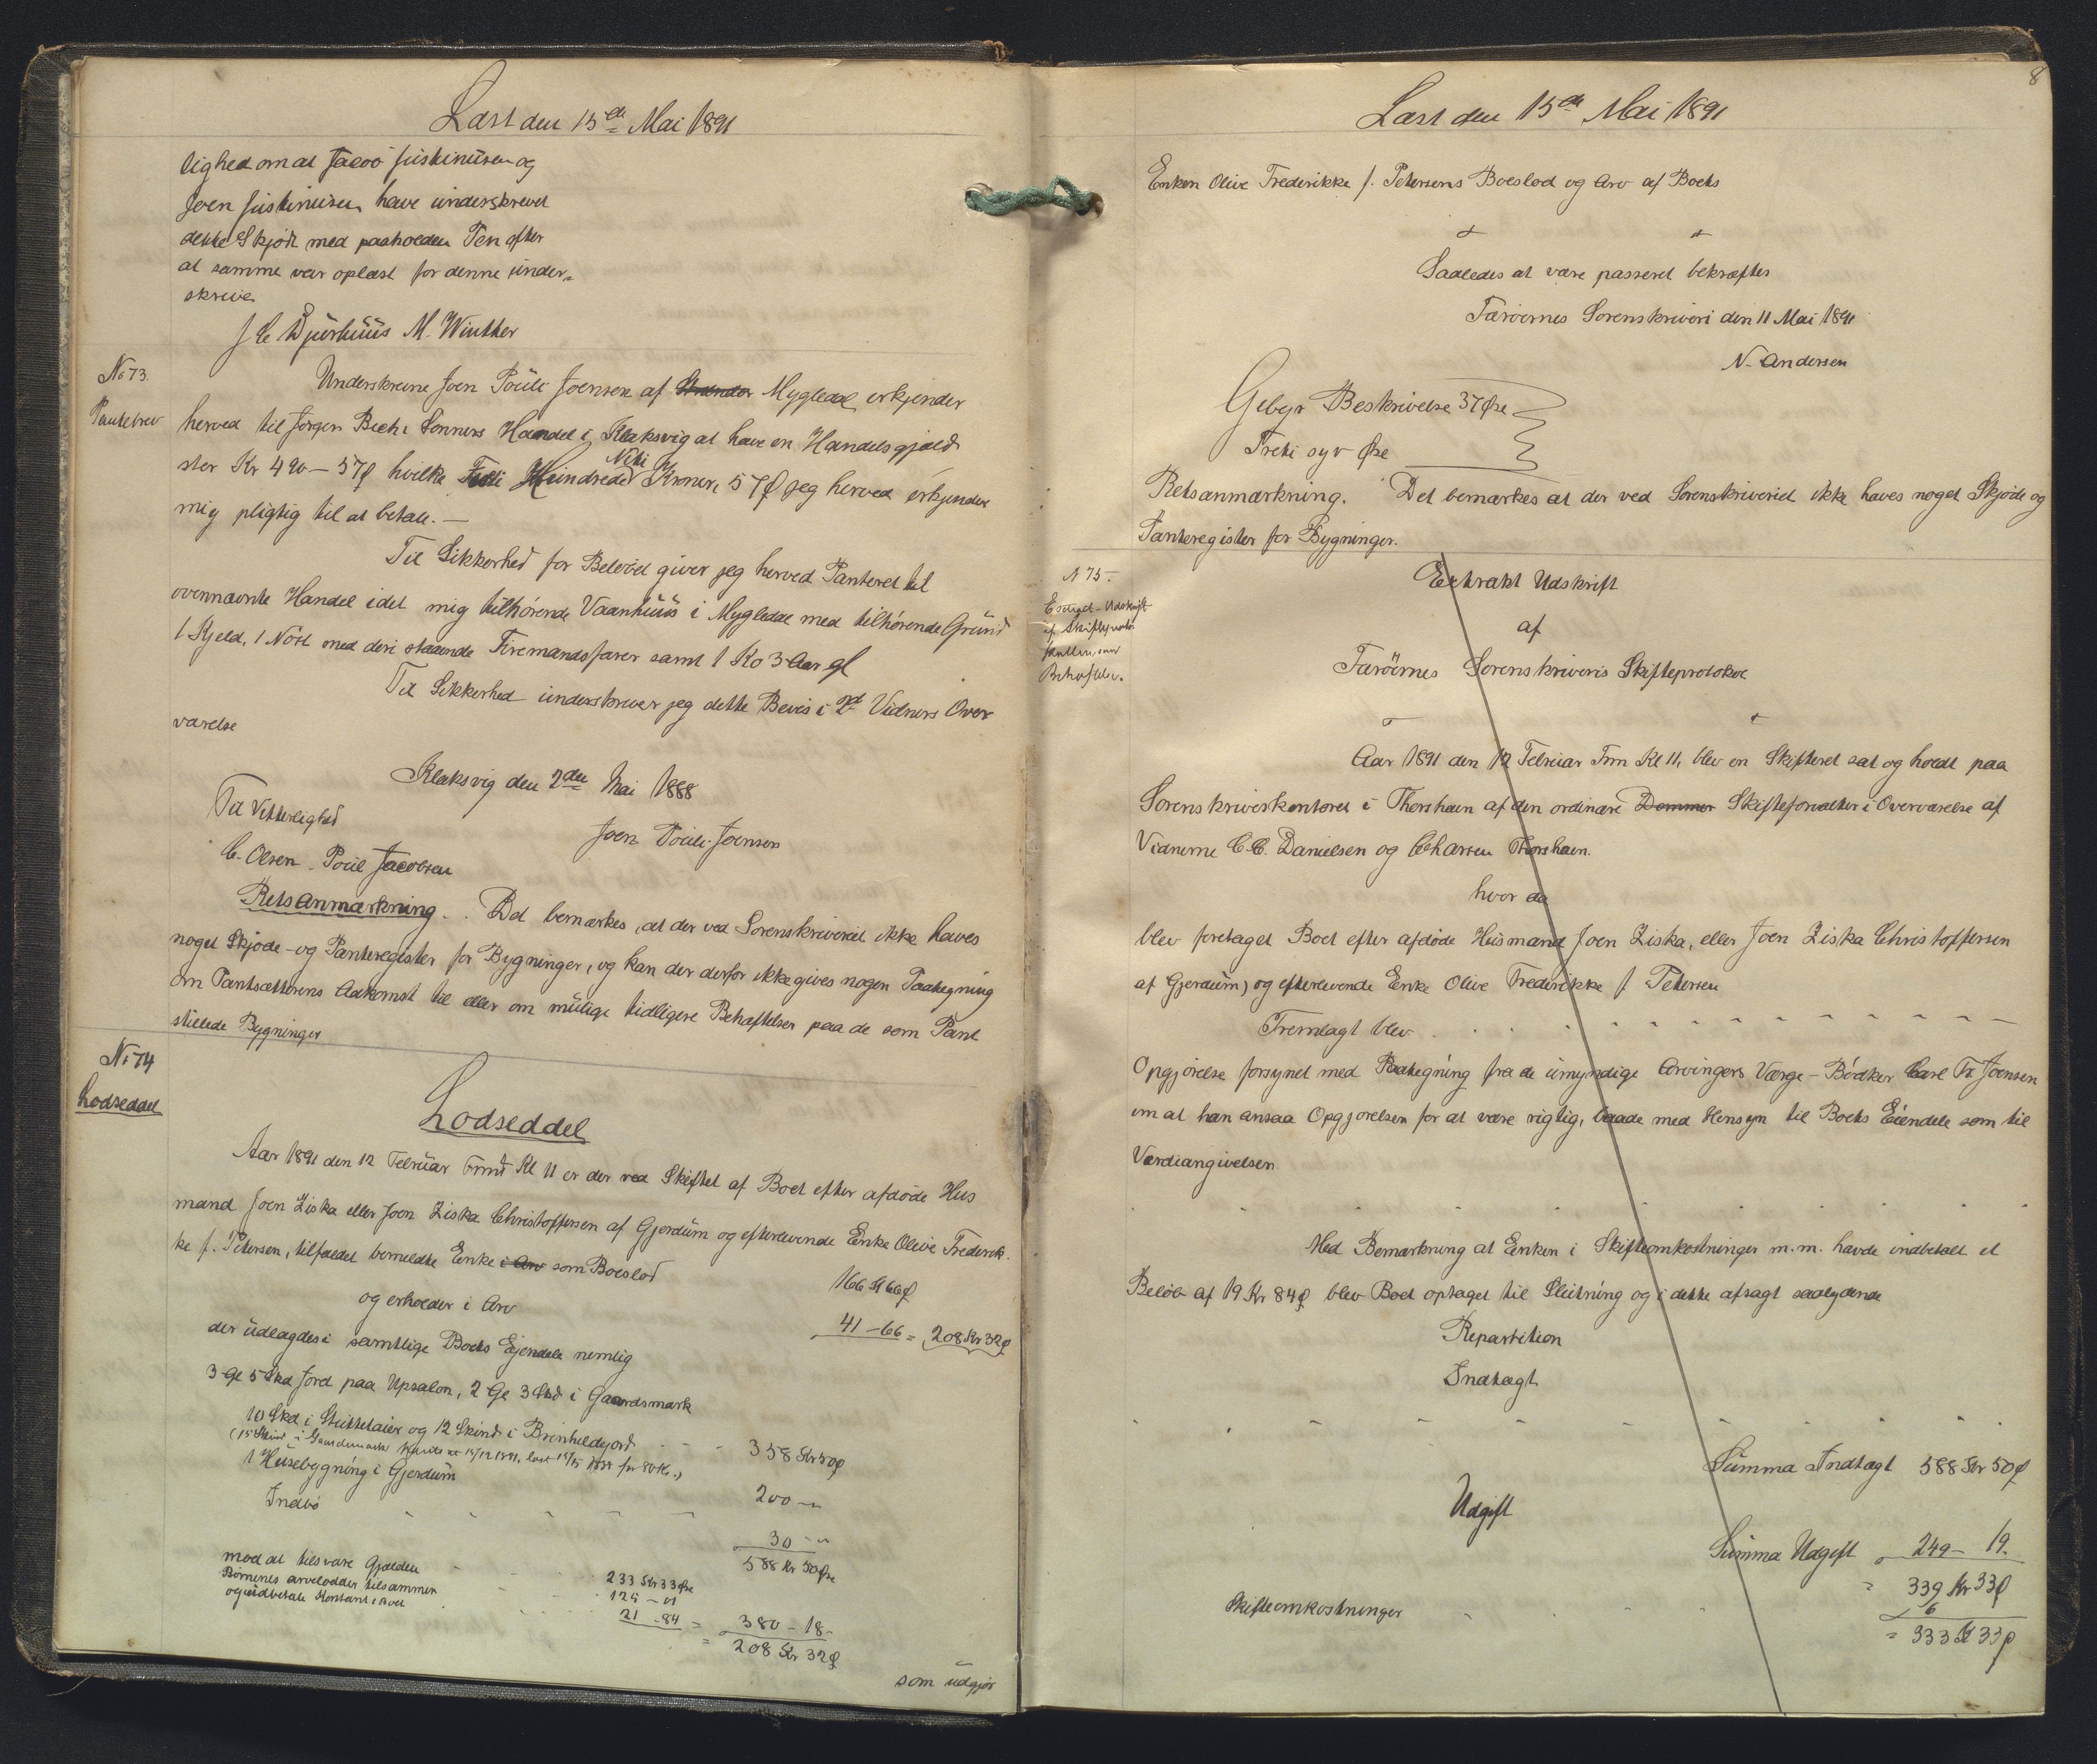 Læst den 15de Mai 1891
lighed om at Jacob Justinusen og
Joen Justinusen have underskrevet
dette Skjøde med paaholden Pen efter
at samme var oplæst for denne under-
skrive
J C Djurhuus M. Winther
No 73.
Pantebrev
Underskrevne Joen Pouli Joensen af Mygledal erkjender
herved til Jørgen Bech & Sønners Handel i Klaksvig at have en Handelsgjæld
stor Kr 490 - 57 ø hvilke Fire Hundrede Niti Kroner, 57 ø jeg herved erkjender
mig pligtig til at betale. —
Til Sikkerhed for Beløbet giver jeg herved Panteret til
ovennævnte Handel i det mig tilhørende Vaanhuus i Mygledal med tilhørende Grund
1 Kjeld, 1 Nøst med deri staaende Firemandsfarer samt 1 Ko 3 Aar gl
Til Sikkerhed underskriver jeg dette Bevis i 2d Vidners Over
værelse
Klaksvig den 2den Mai 1888
Til Vitterlighed
Joen Pouli Joensen
C. Olsen Poul Jacobsen
Retsanmærkning. . Det bemærkes, at der ved Sorenskriveriet ikke haves
noget Skjøde- og Panteregister for Bygninger, og kan der derfor ikke gives nogen Paategning
om Pantsætterens Adkomst til eller om mulige tidligere Behæftelser paa de som Pant
stillede Bygninger
No 74
Lodseddel
Lodseddel
Aar 1891 den 12 Februar Fmd Kl 11 er der ved Skiftet af Boet efter afdøde Hus
mand Joen Ziska eller Joen Ziska Christoffersen af Gjerdum og efterlevende Enke Olive Frederik-
ke f. Petersen, tilfaldet bemeldte Enke i Arv som Boeslod 166 Kr 66 ø
og erholder i Arv 41 - 66 = 208 Kr 32 ø
der udlagdes i samtlige Boets Ejendele nemlig
3 Gl 5 Skd Jord paa Upsalon, 2 Gl 3 Skd i Gaardsmark
10 Skd i Stuttelaier og 12 Skind i Brenhildejord - - 358 Kr 50 ø
1 Husebygning i Gjerdum 200 - "
Indbo - - - - - 30 - "
588 Kr 50 Øre
mod at tilsvare Gjælden - - 233 Kr 33 Øre
Børnenes arvelodder tilsammen - 125 - 01
og indbetale Kontant i Boet - - 21 - 84 = 380 - 18 -
= 208 Kr 32 ø
som udgjør
8
Læst den 15de Mai 1891
Enken Olive Frederikke f. Petersens Boeslod og Arv af Boets
Saaledes at være passeret bekræftes
Færøernes Sorenskriveri den 11 Mai 1891
N. Andersen
Gebyr Beskrivelse 37 Øre
Treti syv Øre
Retsanmærkning. Det bemærkes at der ved Sorenskriveriet ikke haves noget Skjøde og
Panteregister for Bygninger.
N 75.
Extract-Udskrift
af Skifteprotok
Behæftelse.
Extrakt Udskrift
af
Færøernes Sorenskriveris Skifteprotokol
Aar 1891 den 12 Februar Fm Kl 11, blev en Skifteret sat og holdt paa
Sorenskriverkontoret i Thorshavn af den ordinære Dommer Skifteforvalter i Overværelse af
Vidnerne C.C. Danielsen og Thorshavn.
hvor da
blev foretaget Boet efter afdøde Husmand Joen Ziska, eller Joen Ziska Christoffersen
af Gjerdum) og efterlevende Enke Olive Frederikke f. Petersen
Fremlagt blev . . .
Opgjørelse forsynet med Paategning fra de umyndige Arvingers Værge - Bødker Carl Fr Joensen
om at han ansaa Opgjørelsen for at være rigtig, baade med Hensyn til Boets Eiendele som til
Værdiangivelsen
Med Bemærkning at Enken i Skifteomkostninger m.m. havde indbetalt et
Beløb af 19 Kr 84 ø blev Boet optaget til Slutning og i dette afsagt saalydende
Repartition
Indtægt
Summa Indtægt 588 Kr 50 ø
Udgift
Summa Udgift 249 - 19.
= 339 Kr 33 ø
Skifteomkostninger - - - 6
= 333 Kr 33 ø